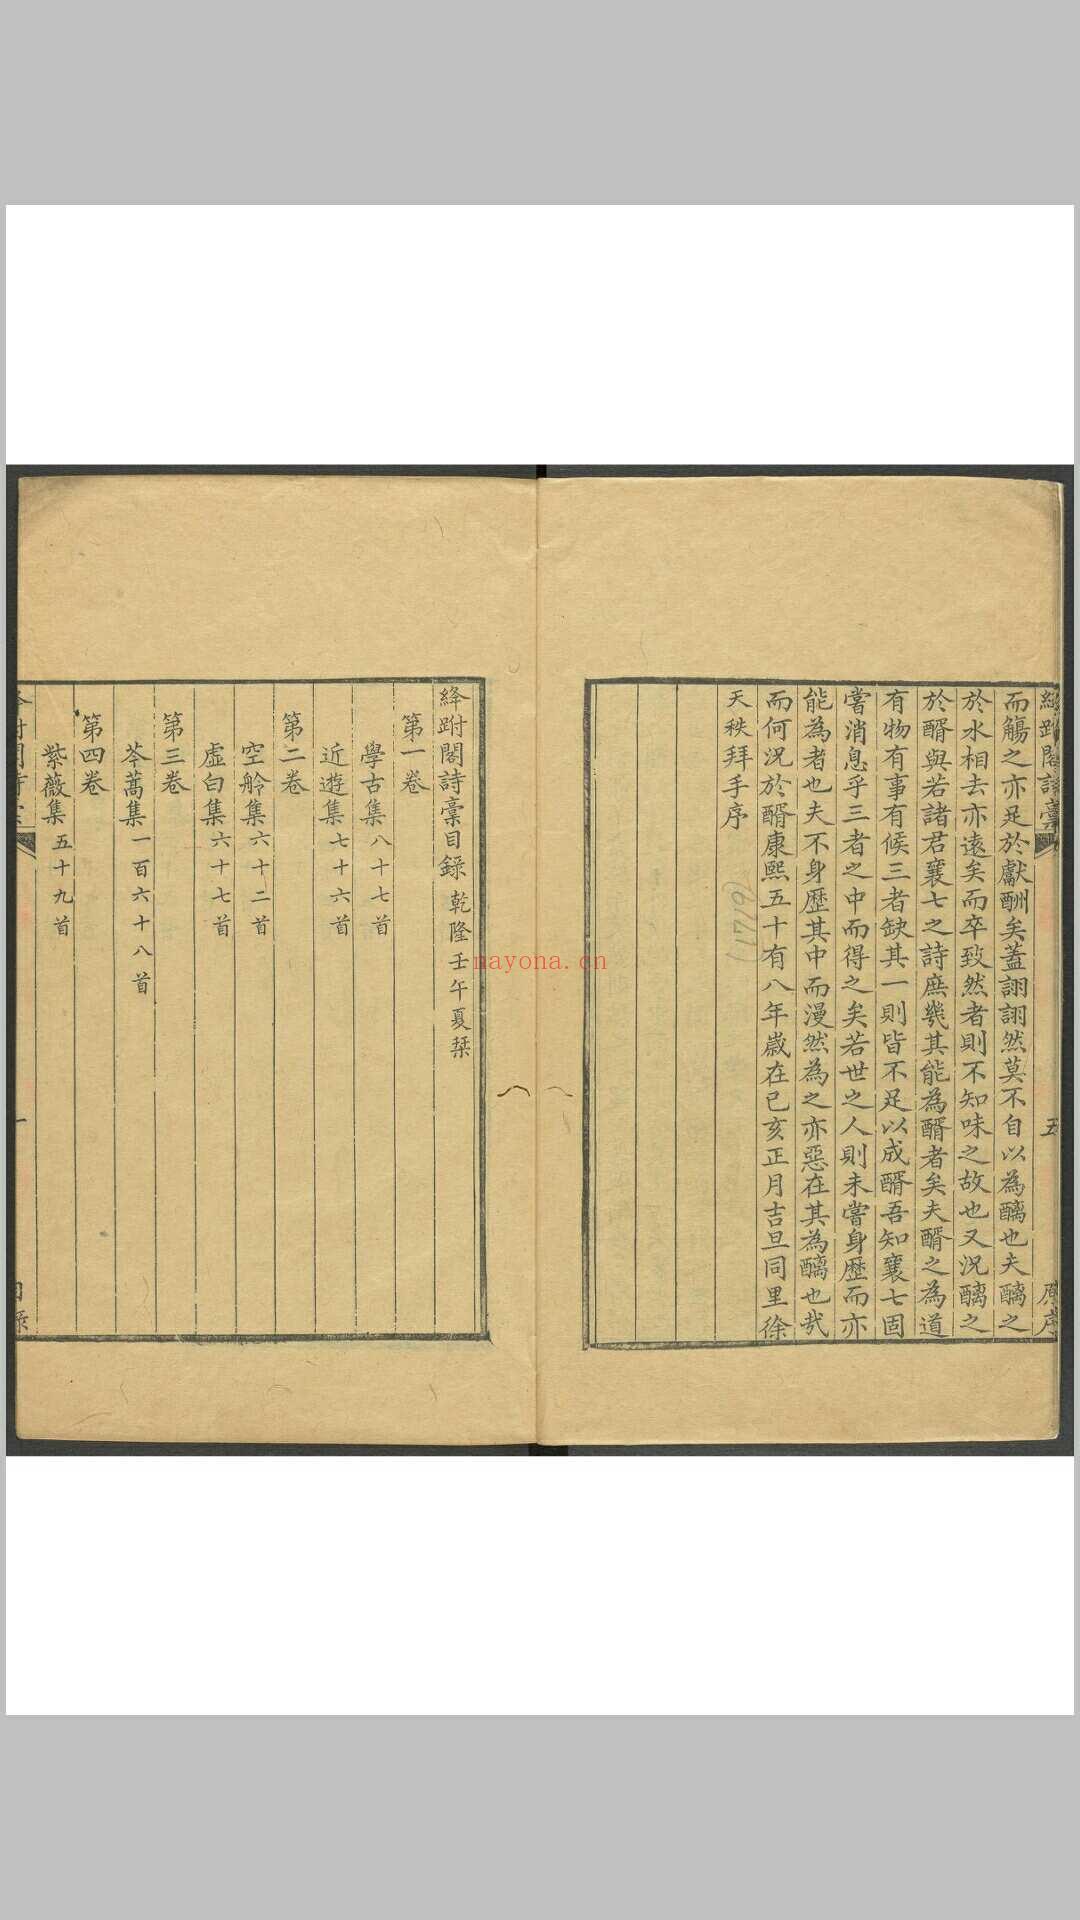 絳趺閣詩稾 五 原序
而觴之亦足於獻酬矣蓋詡詡然莫不自以為醨也夫醨之
於水相去亦遠矣而卒致然者則不知味之故也又況醨之
於醑與若諸君襄七之詩庶幾其能為醑者矣夫醑之為道
有物有事有候三者缺其一則皆不足以成醑吾知襄七固
嘗消息乎三者之中而得之矣若世之人則未嘗身歷而亦
能為者也夫不身歷其中而漫然為之亦惡在其為醨也哉
而何況於醑康熙五十有八年歲在己亥正月吉旦同里徐
天秩拜手序
(1719)
絳跗閣詩稾目錄 乾隆壬午夏琹
第一卷
學古集 八十七首
近遊集 七十六首
第二卷
空舲集 六十二首
虛白集 六十七首
第三卷
芩蒿集 一百六十八首
第四卷
紫薇集 五十九首
一
目錄
nayona.cn